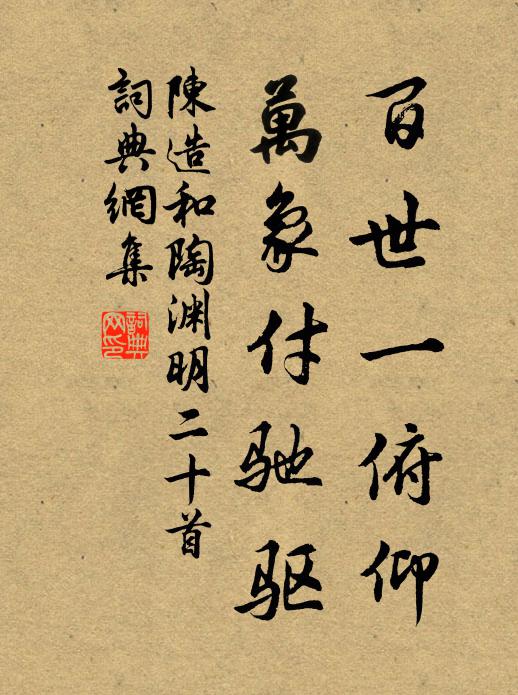 百世一俯仰
萬象付驰驱
陳造和陶渊明二十首
詞典網集
詞典网印